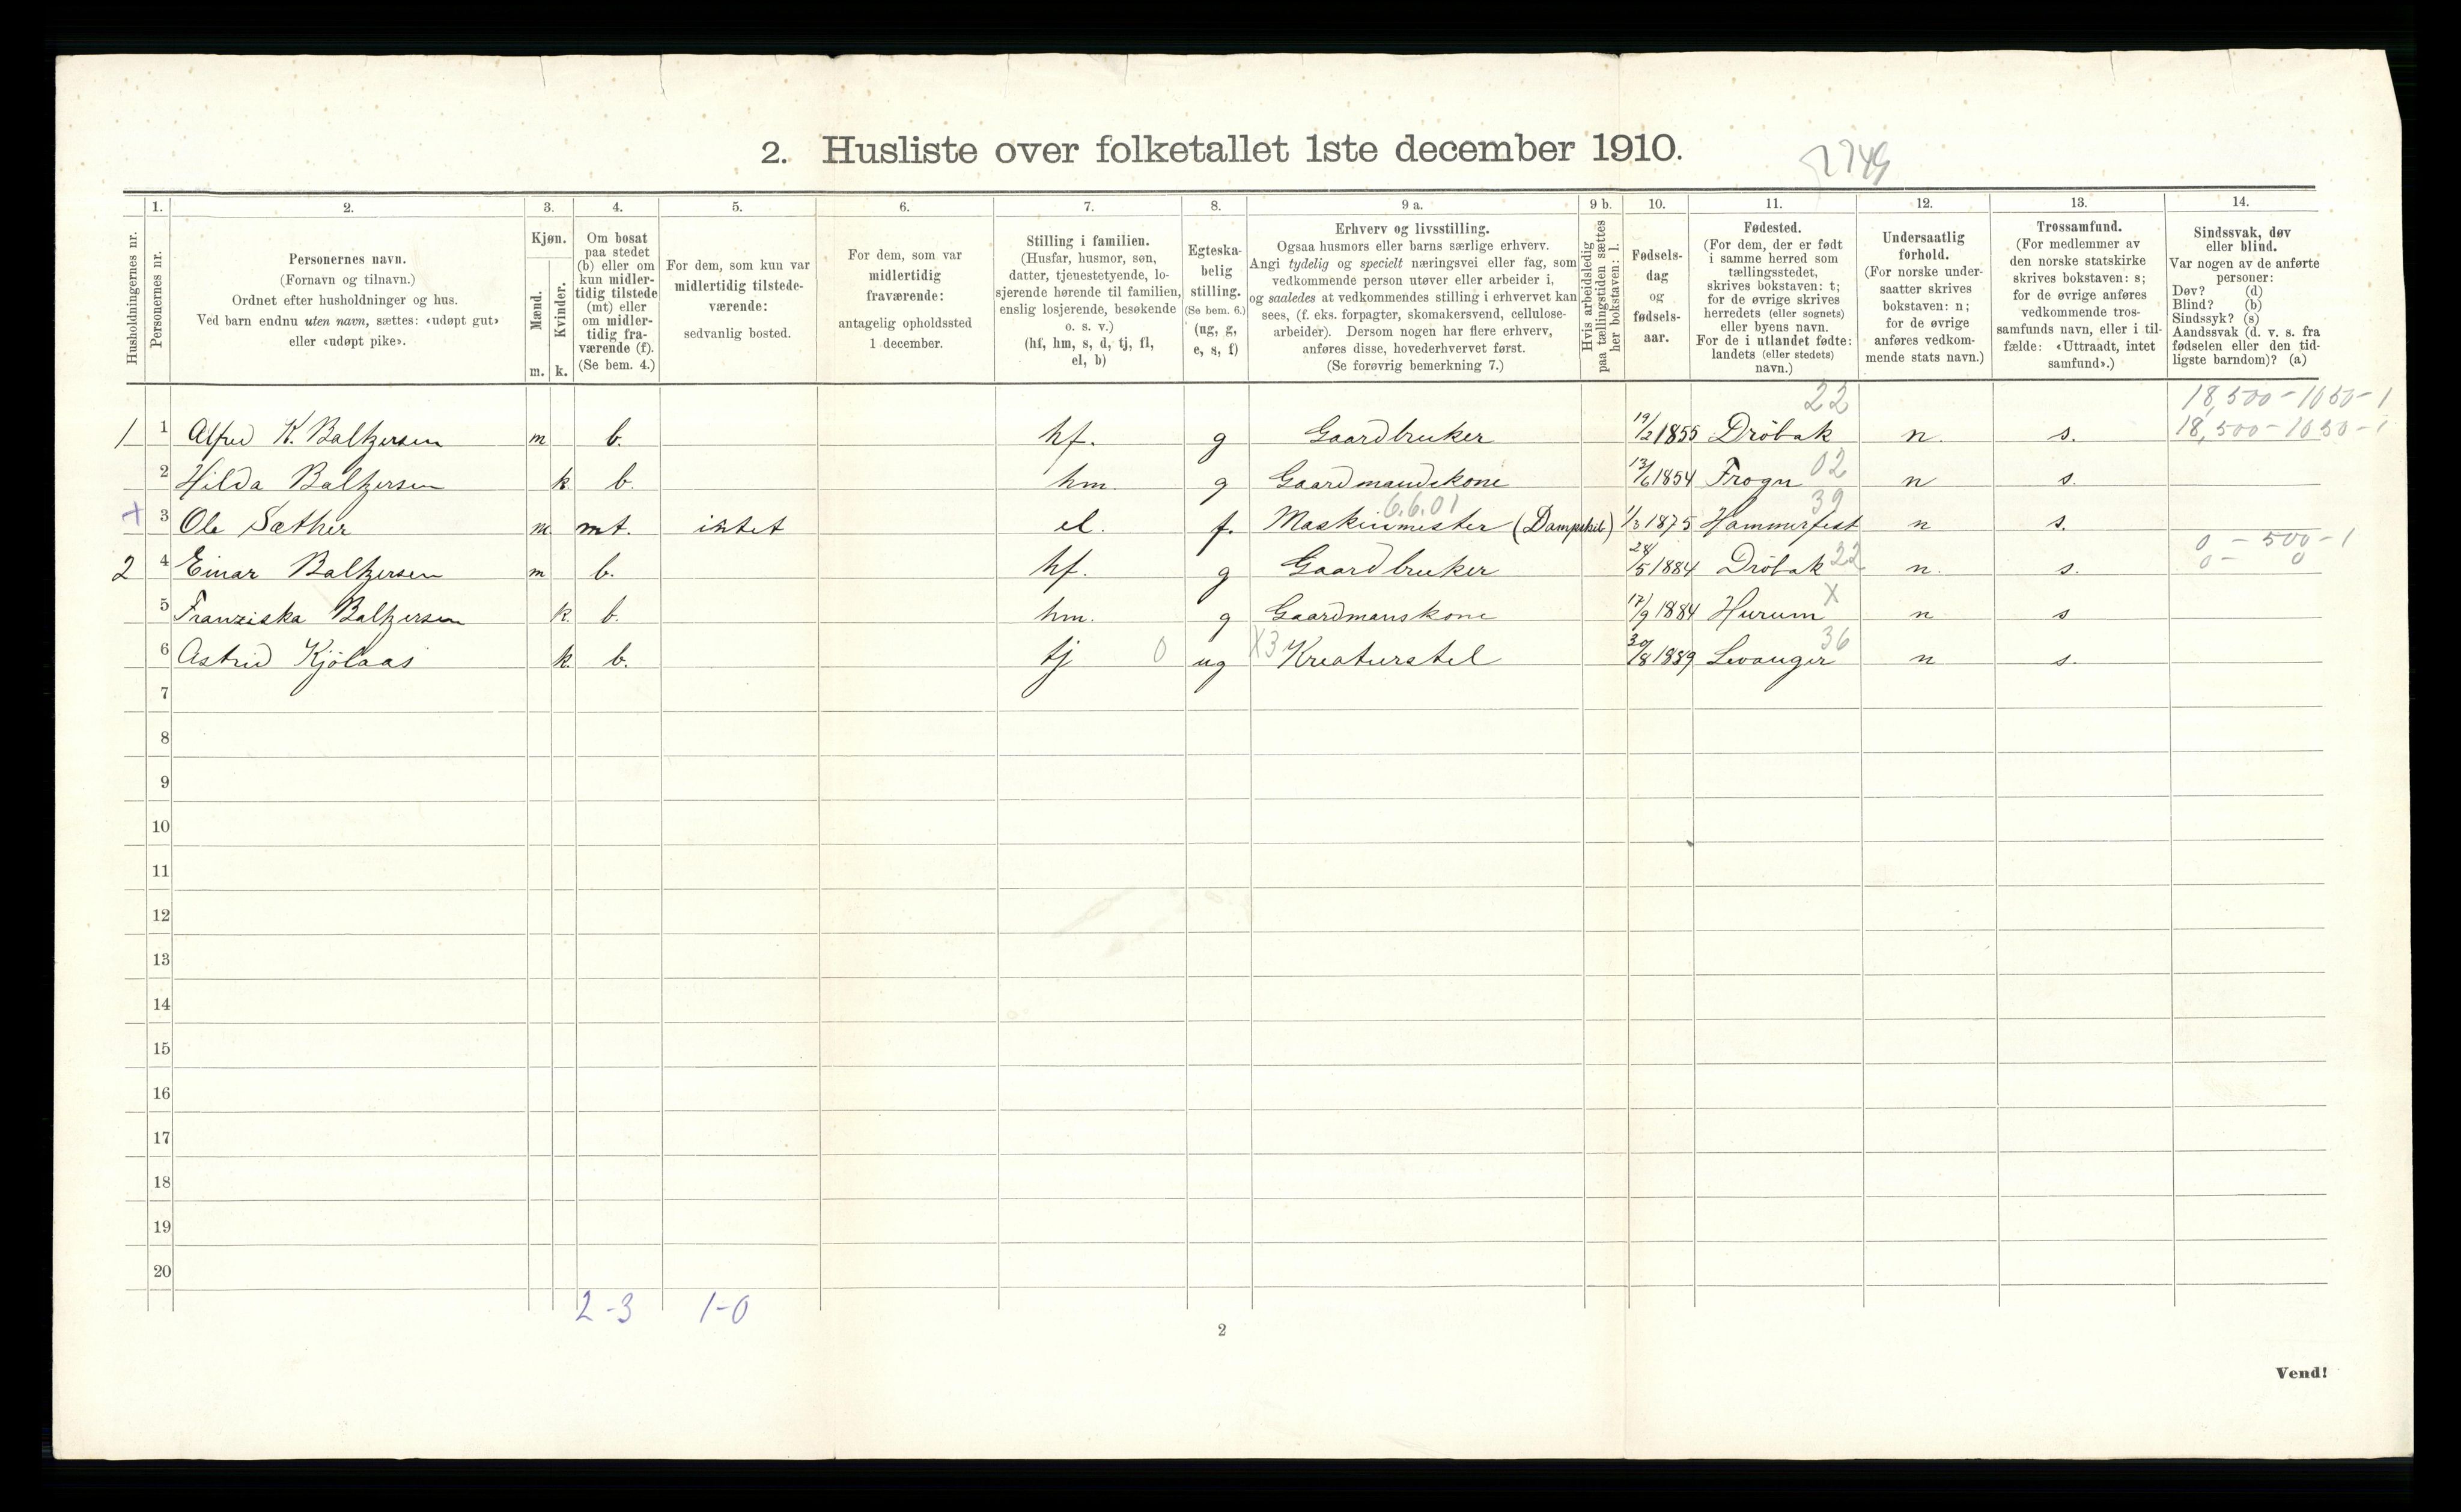 2. Husliste over folketallet 1ste december 1910.
2749
1. 2. 3. 4. 5. 6. 7. 8. 9 a. 9 b. 10. 11. 12. 13. 14.
Husholdningernes nr.
Personernes nr.
Personernes navn.
(Fornavn og tilnavn.)
Ordnet efter husholdninger og hus.
Ved barn endnu uten navn, sættes: «udøpt gut»
eller «udøpt pike».
Kjøn.
Mænd.
Kvinder.
m. k.
Om bosat
paa stedet
(b) eller om
kun midler-
tidig tilstede
(mt) eller
om midler-
tidig fra-
værende (f).
(Se bem. 4.)
For dem, som kun var
midlertidig tilstede-
værende:
sedvanlig bosted.
For dem, som var
midlertidig
fraværende:
antagelig opholdssted
1 december.
Stilling i familien.
(Husfar, husmor, søn,
datter, tjenestetyende, lo-
sjerende hørende til familien,
enslig losjerende, besøkende
o. s. v.)
(hf, hm, s, d, tj, fl,
el, b)
Egteska-
belig
stilling.
(Se bem. 6.)
(ug, g,
e, s, f)
Erhverv og livsstilling.
Ogsaa husmors eller barns særlige erhverv.
Angi tydelig og specielt næringsvei eller fag, som
vedkommende person utøver eller arbeider i,
og saaledes at vedkommendes stilling i erhvervet kan
sees, (f. eks. forpagter, skomakersvend, cellulose-
arbeider). Dersom nogen har flere erhverv,
anføres disse, hovederhvervet først.
(Se forøvrig bemerkning 7.)
Hvis arbeidsledig
paa tællingstiden sættes
her bokstaven: l.
Fødsels-
dag
og
fødsels-
aar.
Fødested.
(For dem, der er født
i samme herred som
tællingsstedet,
skrives bokstaven: t;
for de øvrige skrives
herredets (eller sognets)
eller byens navn.
For de i utlandet fødte:
landets (eller stedets)
navn.)
Undersaatlig
forhold.
(For norske under-
saatter skrives
bokstaven: n;
for de øvrige
anføres vedkom-
mende stats navn.)
Trossamfund.
(For medlemmer av
den norske statskirke
skrives bokstaven: s;
for de øvrige anføres
vedkommende tros-
samfunds navn, eller i til-
fælde: «Uttraadt, intet
samfund».)
Sindssvak, døv
eller blind.
Var nogen av de anførte
personer:
Døv? (d)
Blind? (b)
Sindssyk? (s)
Aandssvak (d. v. s. fra
fødselen eller den tid-
ligste barndom)? (a)
22 18,500-1050-1
1 1 Alfred K. Baltzersen m b. hf. g Gaardbruker 19/2 1855 Dröbak n. s. 18,500-1050-1
2 Hilda Baltzersen k b. hm. g Gaardmandskone 13/6 1854 Frogn 02 n s.
6.6.01 39
+ 3 Ole Sæther m. mt. intet el. f. Maskinmester (Dampskib) 1/3 1875 Hammerfest n s.
0 - 500-1
2 4 Einar Baltzersen m b. hf. g Gaardbruker 28/5 1884 Dröbak 22 n. s. 0- 0
x
5 Franziska Baltzersen k. b. hm. g Gaardmanskone 17/9 1884 Hurum n s
36
6 Astrid Kjölaas k. b. tj 0 ug X3 Kreaturstel 30/8 1889 Levanger n s.
7
8
9
10
11
12
13
14
15
16
17
18
19
20
2-3 1-0
2
Vend!